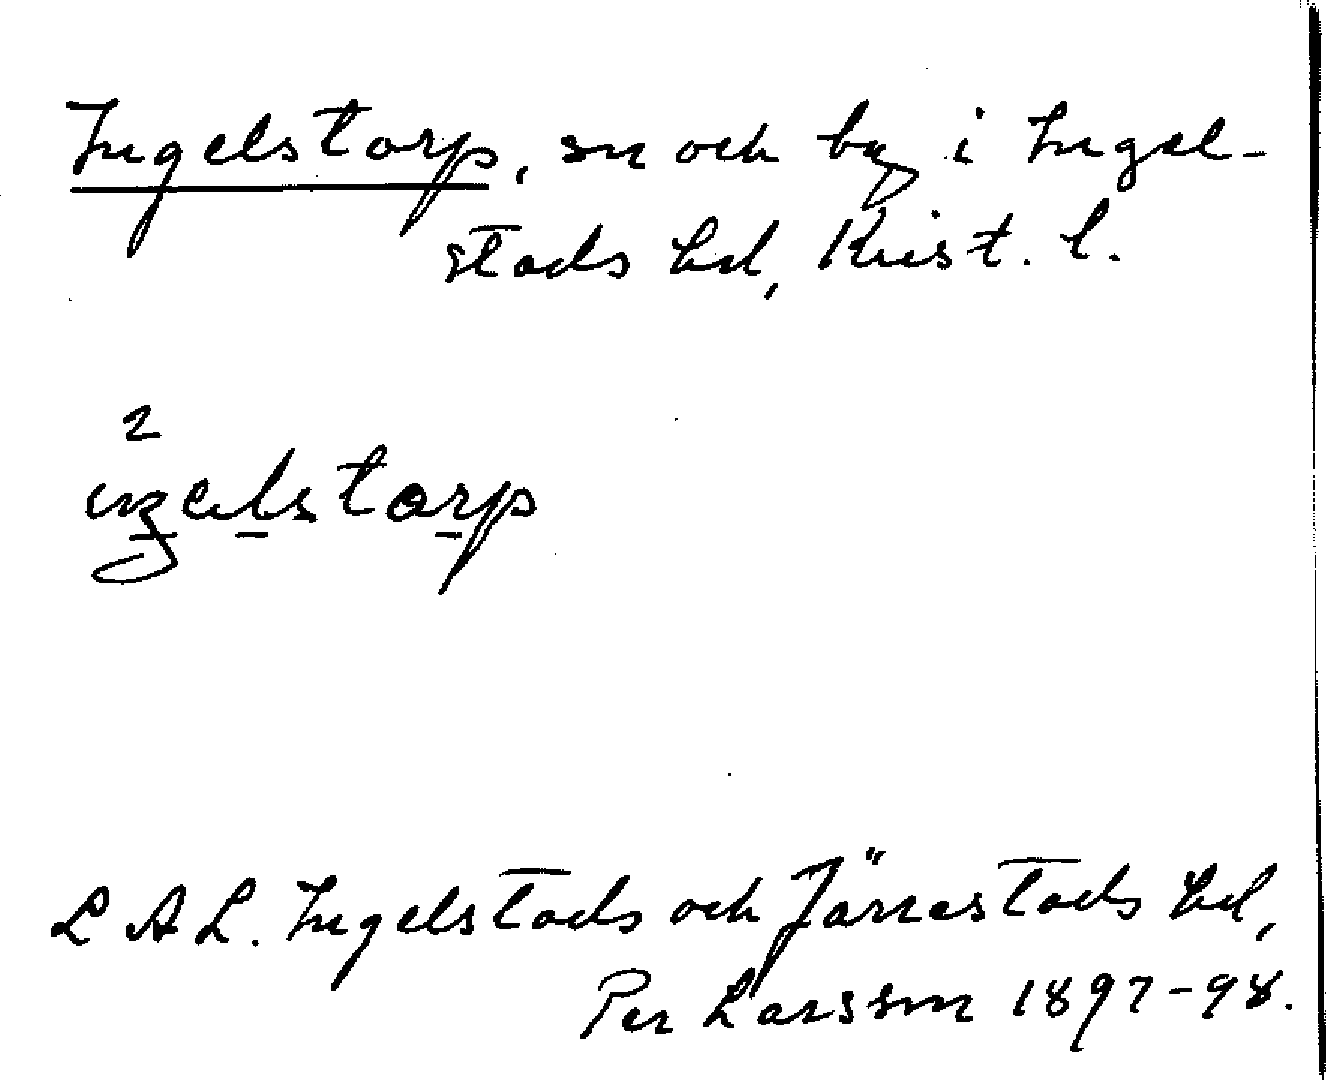 Ingelstorp, sn och by i Ingel-
stads hd, Krist. l.
2
ingelstorp
LAL. Ingelstads och Järrestads hd,
Per Larsson 1897-98.